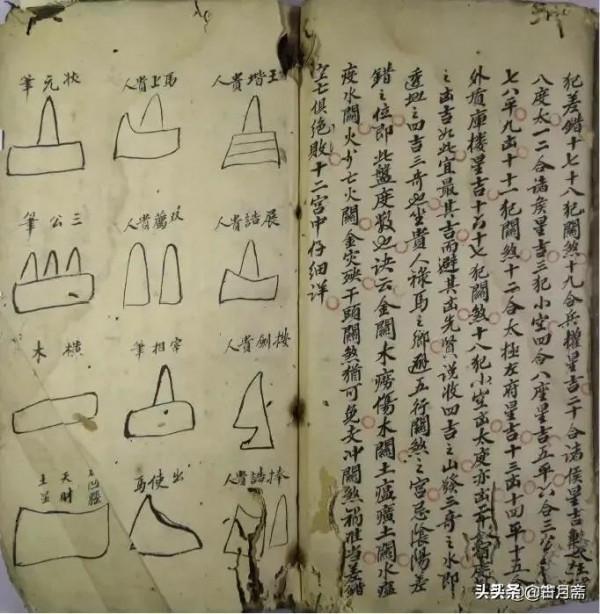 犯差錯十七十八犯關煞十九合兵權星吉二十合諸侯星吉
八度太一二合諸侯星吉三犯小空四合八座星吉五平六合三公
七八平九凶十十一犯關煞十二合太極左府星吉十三凶十四平十五
外有庫樓星吉十六十七犯關煞十八犯小空凶太度亦凶
之凶吉如此宜最其吉而避其凶先賢說收四吉之山發三奇之水即
透地之四吉三奇也坐貴人祿馬之鄉避五行關煞之宮忌陰陽差
錯之位即此盤度數也訣云金關木癆傷木關土瘟㾮土關水瘟
疫水關火少亡火關金災殃干頭關煞猶可免支冲關煞禍難當差錯
空亡俱絕敗十二宮中仔細詳
王堦貴人
馬上貴人
狀元筆
展誥貴人
双薦貴人
三公筆
按劍貴人
宰相筆
橫木
捧誥貴人
出使馬
凹腦
天財
土星
头条 @皓月斋